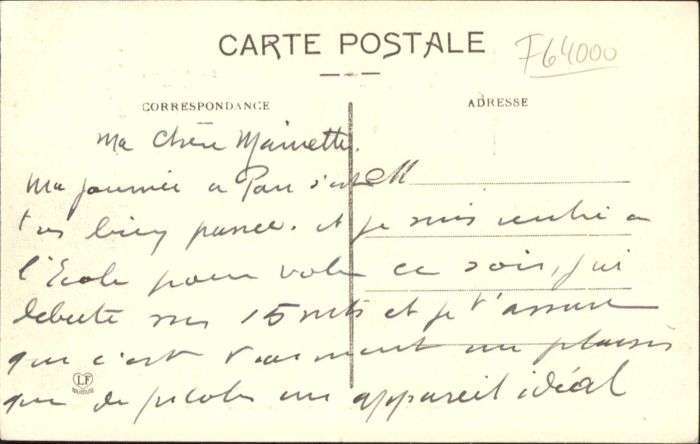 CARTE POSTALE
F64000
CORRESPONDANCE
ADRESSE
Ma Chère Mainette.
Ma journée a Pau s'est
très bien passée. et je suis rentré a
l'Ecole pour voler ce soir, j'ai
débuté sur 15 mts et je t'assure
que c'est vraiment un plaisir
que de piloter un appareil idéal
LF